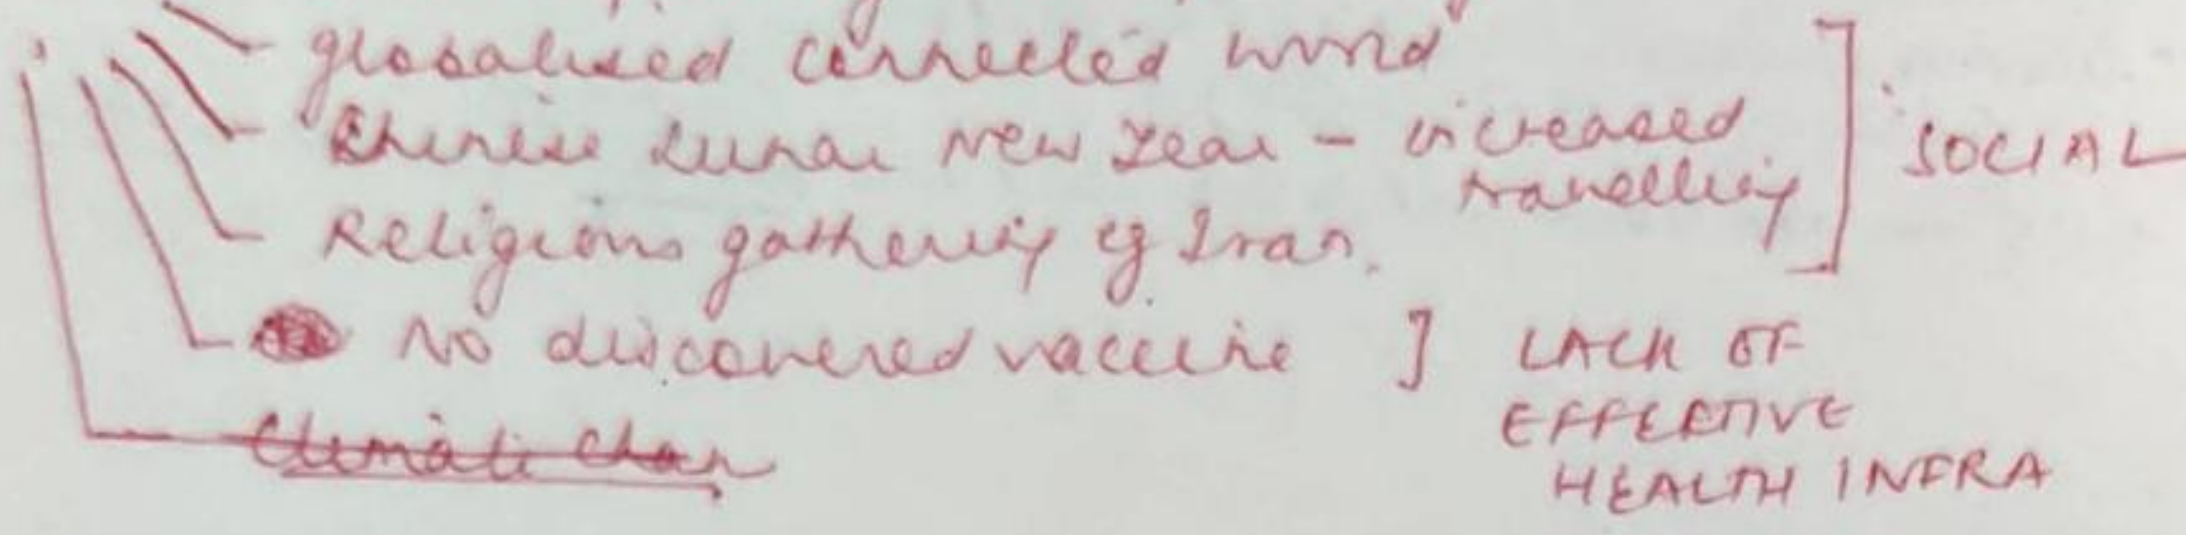 globalised connected world
Chinese Lunar New Year - increased
travelling
] SOCIAL
Religious gathering eg Iran.
No discovered vaccine ] LACK OF
EFFECTIVE
HEALTH INFRA
Climate Chan